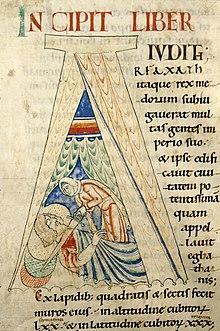 INCIPIT LIBER
IUDITh
A RFAXATh
itaque rex me
dorum subiu
gaverat mul
tas gentes im
perio suo
& ipse edifi
cavit civi
tatem po
tentissimā
quam
appel
lavit
egba
tha
nis;
Ex lapidib; quadratis & sectis fecit
muros eius. in altitudine cubitorū
lxx & in latitudine cubitorū xxx